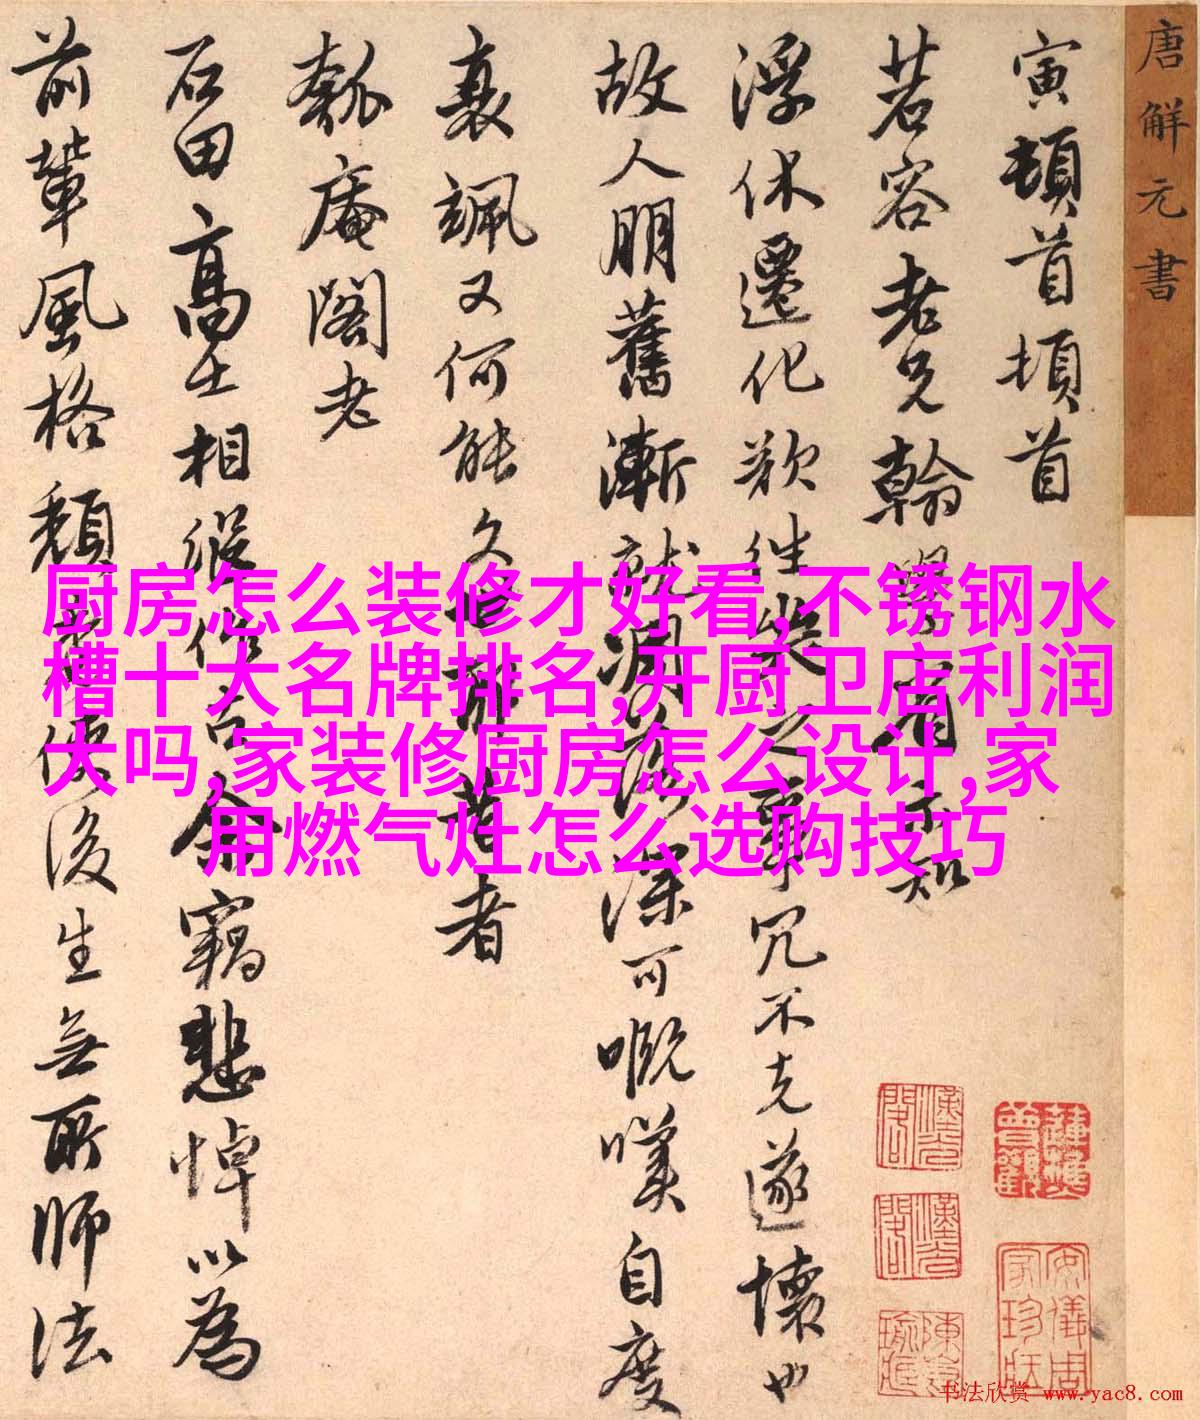 唐解元書
寅頓首頓首
茗容老兄翰
浮休遷化欲往
之事冗不克遂壞也
故人朋舊漸就凋落深可嘅嘆自度
衰颯又何能久
者
瓠庵閣老
石田高士相
竊悲悼以為
前輩風格頹
後生無所師法
厨房怎么装修才好看,不锈钢水
槽十大名牌排名,开厨卫店利润
大吗,家装修厨房怎么设计,家
用燃气灶怎么选购技巧
安儀周家珍藏
书法欣赏 www.yac8.com